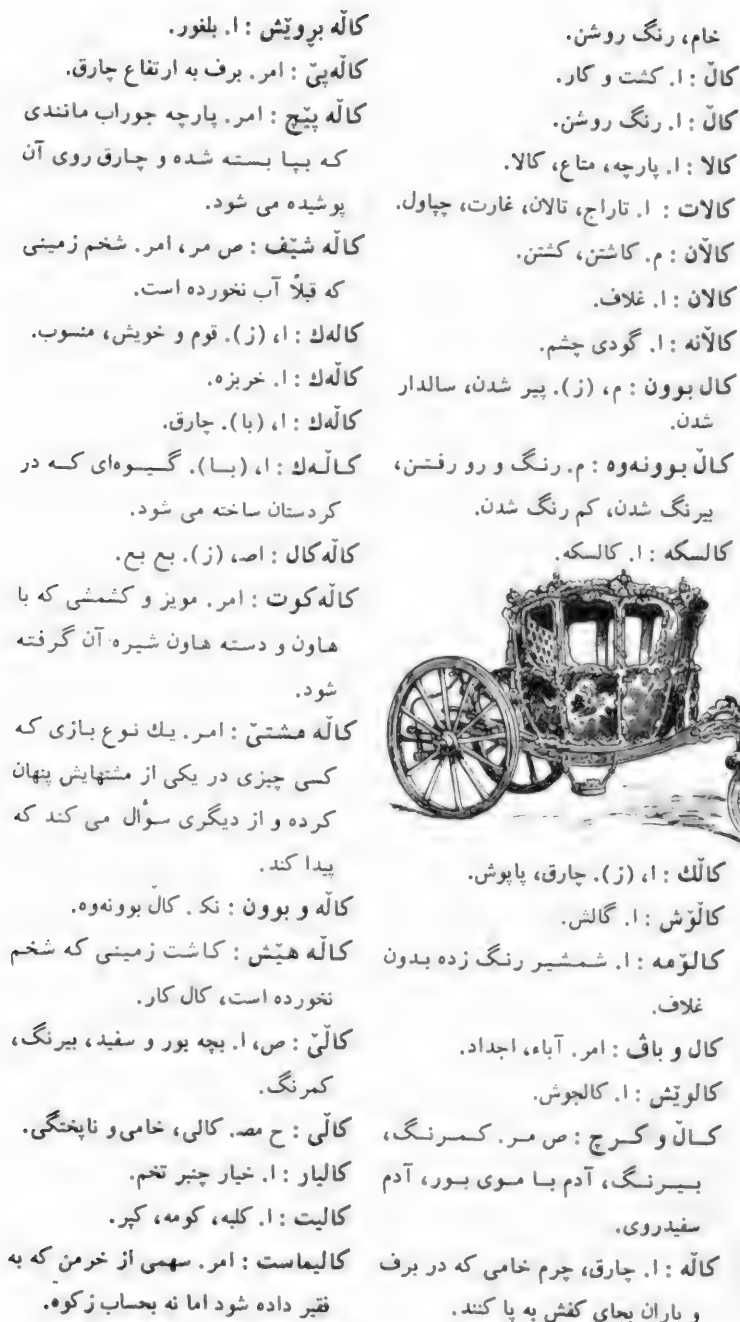 خام، رنگ روشن.
کاڵ : ا. کشت و کار.
کاڵ : ا. رنگ روشن.
کالا : ا. پارچه، متاع، کالا.
کالات : ا. تاراج، تالان، غارت، چپاول.
کاڵان : م. کاشتن، کشتن.
کالان : ا. غلاف.
کاڵانه : ا. گودی چشم.
کال بوون : م، (ز). پیر شدن، سالدار
شدن.
کاڵ بوونه‌وه : م. رنگ و رو رفتن،
بیرنگ شدن، کم رنگ شدن.
کالسکه : ا. کالسکه.
کاڵك : ا، (ز). چارق، پاپوش.
کاڵۆش : ا. گالش.
کالۆمه : ا. شمشیر رنگ زده بدون
غلاف.
کال و باڤ : امر. آباء، اجداد.
کالوێش : ا. کالجوش.
کاڵ و کرچ : ص مر. کمرنگ،
بیرنگ، آدم با موی بور، آدم
سفیدروی.
کاڵه : ا. چارق، چرم خامی که در برف
و باران بجای کفش به پا کنند.
کاڵه بروێش : ا. بلغور.
کاڵه‌پێ : امر. برف به ارتفاع چارق.
کاڵه پێچ : امر. پارچه جوراب مانندی
که بپا بسته شده و چارق روی آن
پوشیده می شود.
کاڵه شێف : ص مر، امر. شخم زمینی
که قبلاً آب نخورده است.
کاله‌ك : ا، (ز). قوم و خویش، منسوب.
کاڵه‌ك : ا. خربزه.
کاڵه‌ك : ا، (با). چارق.
کاڵه‌ك : ا، (با). گیوه‌ای که در
کردستان ساخته می شود.
کاڵه‌کال : اصـ، (ز). بع بع.
کاڵه‌کوت : امر. مویز و کشمشی که با
هاون و دسته هاون شیره آن گرفته
شود.
کاڵه مشتێ : امر. یك نوع بازی که
کسی چیزی در یکی از مشتهایش پنهان
کرده و از دیگری سوأل می کند که
پیدا کند.
کاڵه و بوون : نکـ. کاڵ بوونه‌وه.
کاڵه هێش : کاشت زمینی که شخم
نخورده است، کال کار.
کاڵێ : ص، ا. بچه بور و سفید، بیرنگ،
کمرنگ.
کاڵی : ح مصـ. کالی، خامی و ناپختگی.
کالیار : ا. خیار چنبر تخم.
کالیت : ا. کلبه، کومه، کپر.
کالیماست : امر. سهمی از خرمن که به
فقیر داده شود اما نه بحساب زکوة.